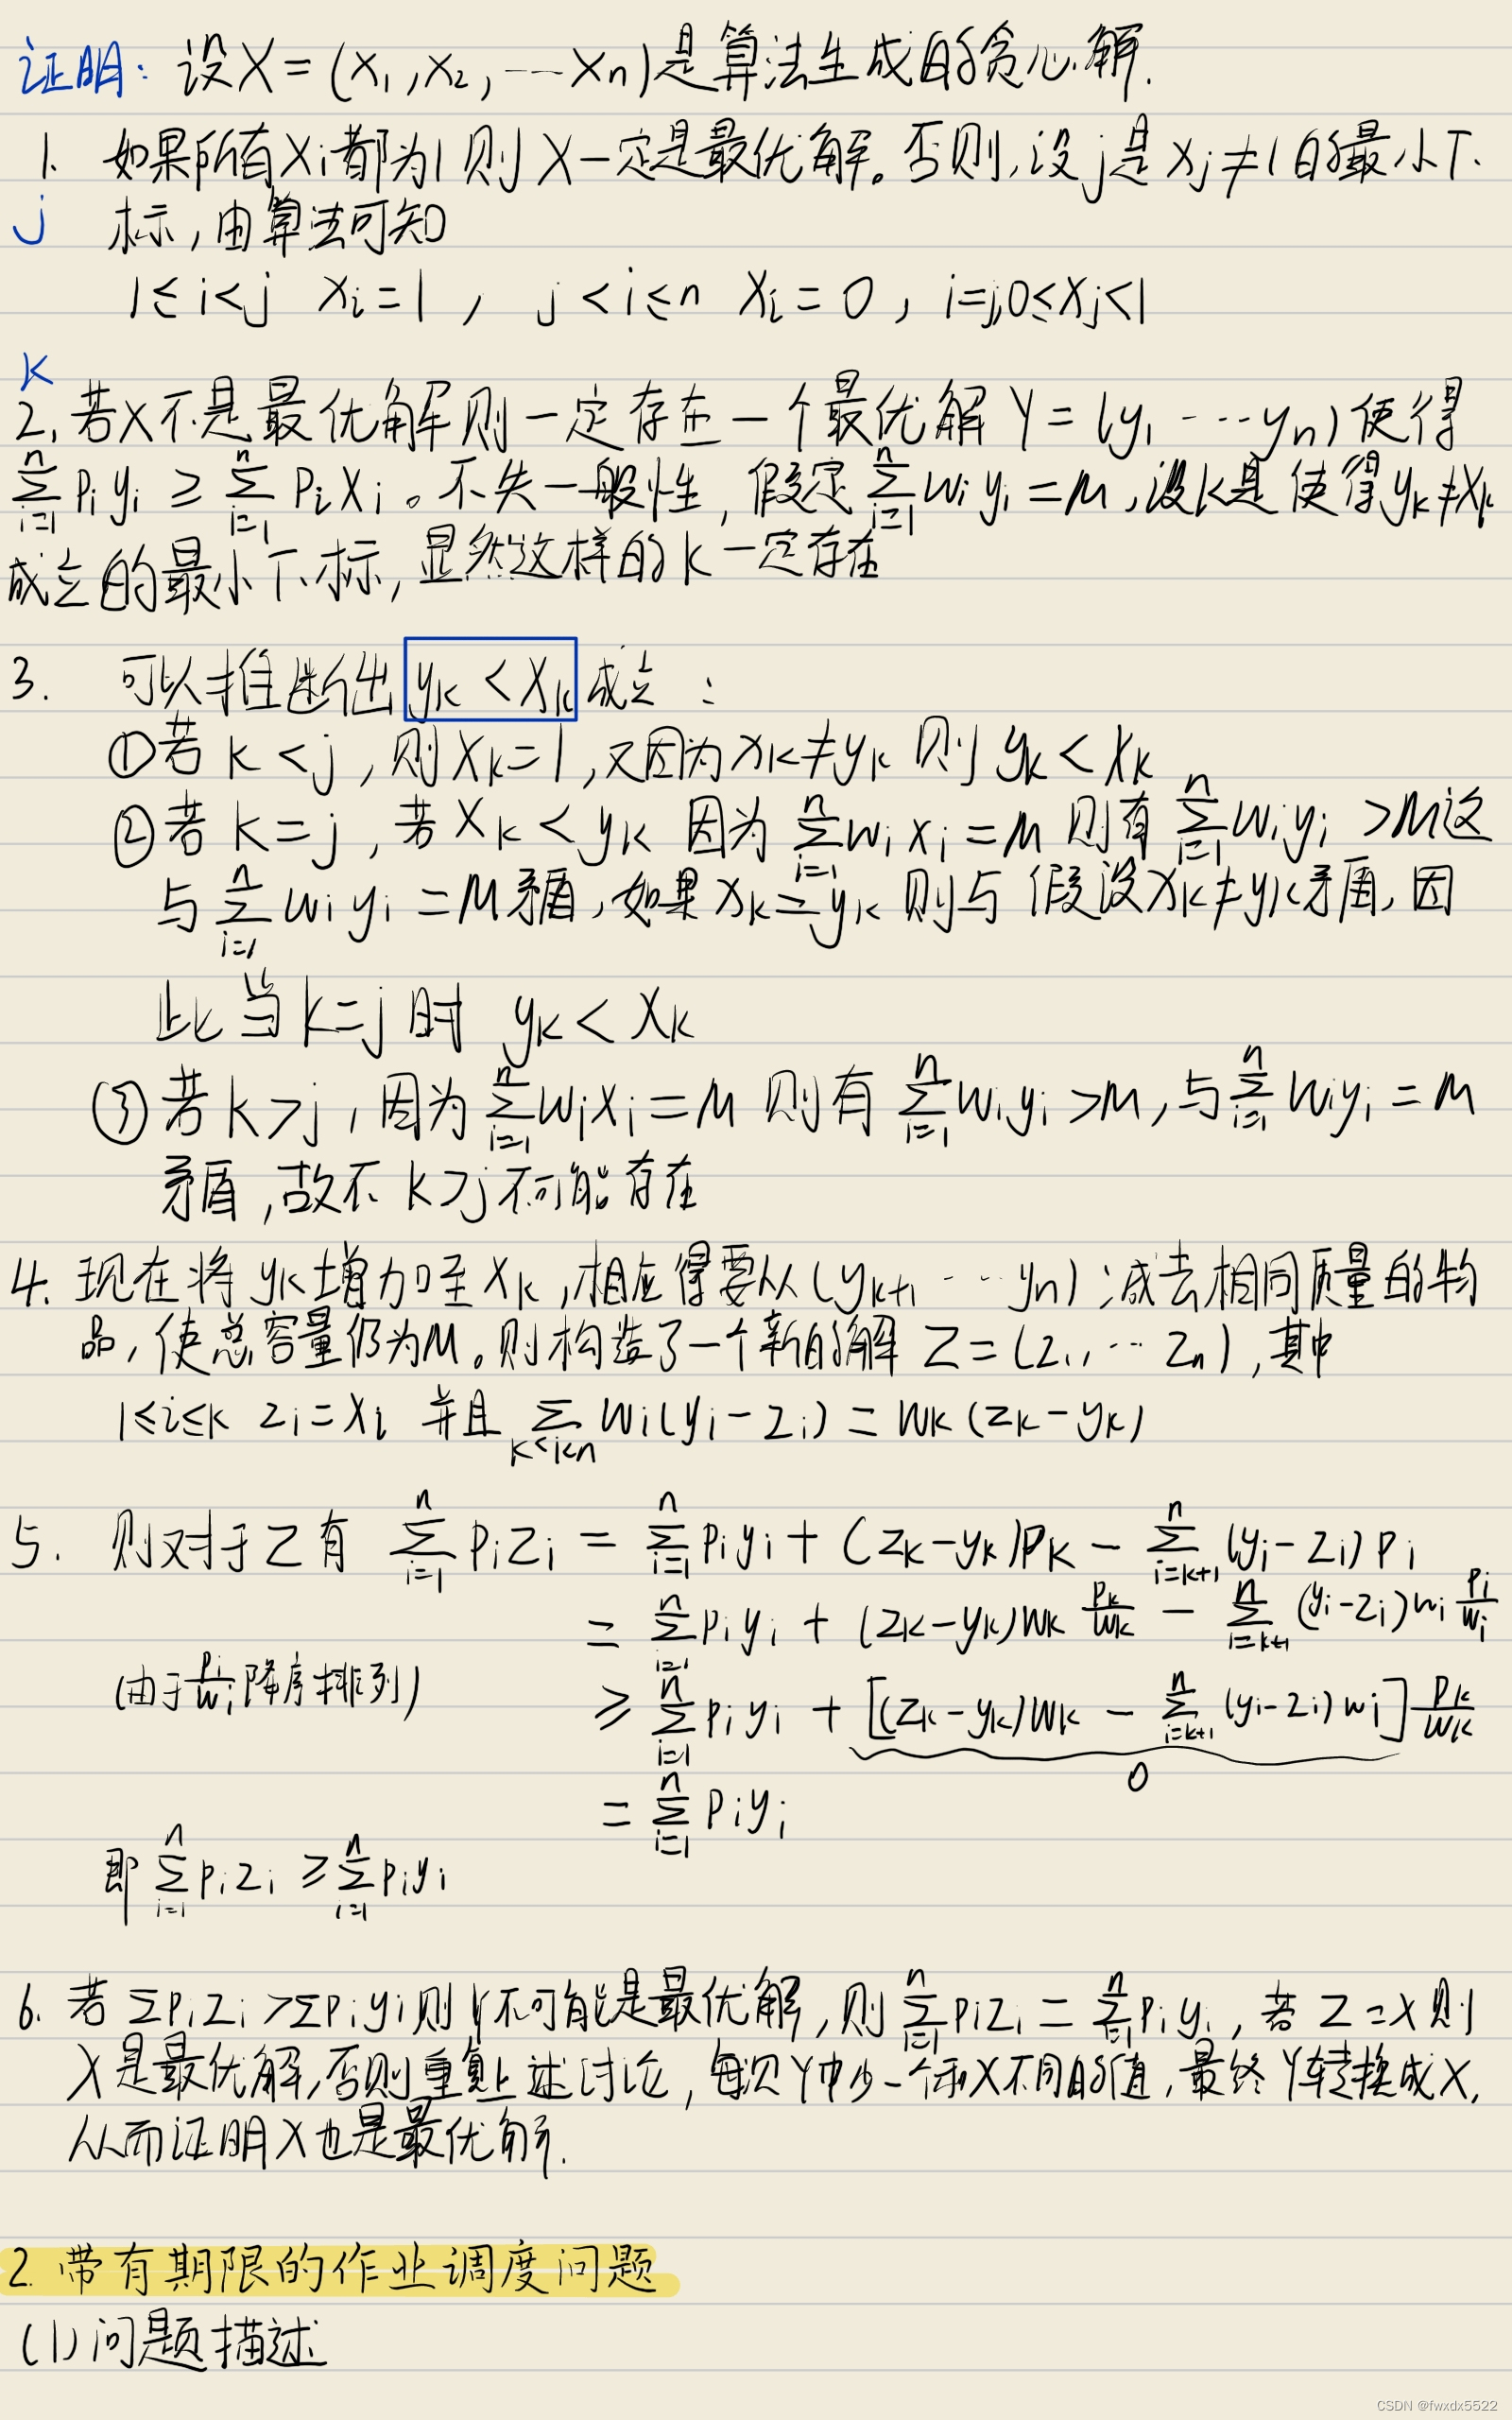 证明: 设X=(x₁,x₂,…xn)是算法生成的贪心解.
1. 如果所有xi都为1则X一定是最优解。否则,设j是xj≠1的最小下
j 标,由算法可知
1≤i<j xi=1, j<i≤n xi=0, i=j,0≤xj<1
K
2.若X不是最优解则一定存在一个最优解Y=(y₁…yn)使得
∑_{i=1}^{n} piyi ≥ ∑_{i=1}^{n} pixi。不失一般性,假定∑_{i=1}^{n} wiyi=M,设k是使得yk≠xk
成立的最小下标,显然这样的k一定存在
3. 可以推断出yk<xk成立:
①若k<j,则xk=1,又因为xk≠yk则yk<xk
②若k=j,若xk<yk因为∑_{i=1}^{n} wixi=M则有∑_{i=1}^{n} wiyi>M这
与∑_{i=1}^{n} wiyi=M矛盾,如果xk=yk则与假设xk≠yk矛盾,因
此当k=j时 yk<xk
③若k>j,因为∑_{i=1}^{n} wixi=M则有∑_{i=1}^{n} wiyi>M,与∑_{i=1}^{n} wiyi=M
矛盾,故不k>j不可能存在
4.现在将yk增加至xk,相应得要从(yk+1…yn)减去相同质量的物
品,使总容量仍为M。则构造了一个新的解Z=(z₁,…zn),其中
1≤i≤k zi=xi 并且∑_{k<i<n} wi(yi-zi)=wk(zk-yk)
5. 则对于Z有 ∑_{i=1}^{n} pizi = ∑_{i=1}^{n} piyi+(zk-yk)pk-∑_{i=k+1}^{n}(yi-zi)pi
= ∑_{i=1}^{n} piyi+(zk-yk)wk pk/wk - ∑_{i=k+1}^{n}(yi-zi)wi pi/wi
(由于pi/wi降序排列) ≥ ∑_{i=1}^{n} piyi+[(zk-yk)wk-∑_{i=k+1}^{n}(yi-zi)wi]pk/wk
0
= ∑_{i=1}^{n} piyi
即∑_{i=1}^{n} pizi ≥ ∑_{i=1}^{n} piyi
6.若∑pizi>∑piyi则Y不可能是最优解,则∑_{i=1}^{n} pizi=∑_{i=1}^{n} piyi,若Z=X则
X是最优解,否则重复上述讨论,每次Y中少一个和X不同的值,最终Y转换成X,
从而证明X也是最优解.
2.带有期限的作业调度问题
(1)问题描述
CSDN @fwxdx5522